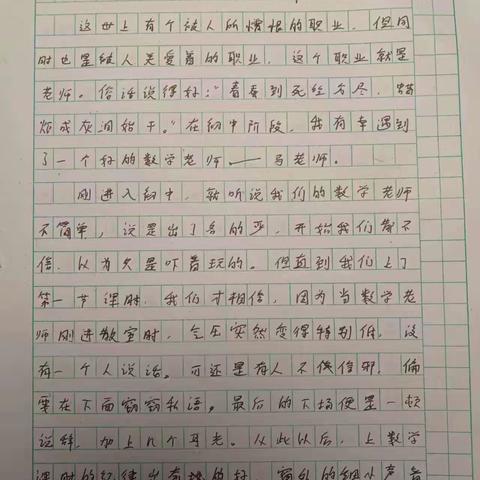 这世上有个被人所憎恨的职业，但同
时也是被人关爱着的职业，这个职业就是
老师。俗话说得好："春蚕到死丝方尽，蜡
炬成灰泪始干。"在初中阶段，我有幸遇到
了一个好的数学老师——马老师。
刚进入初中，就听说我们的数学老师
不简单，说是出了名的严，开始我们都不
信，以为只是吓着玩的。但直到我们上了
第一节课时，我们才相信，因为当数学老
师刚进教室时，气压突然变得特别低，没
有一个人说话。可还是有人不侠信邪，偏
要在下面窃窃私语。最后的下场便是一顿
说辞，加上几个耳光。从此以后，上数学
课时的纪律出奇地的好，窗外的细小声音